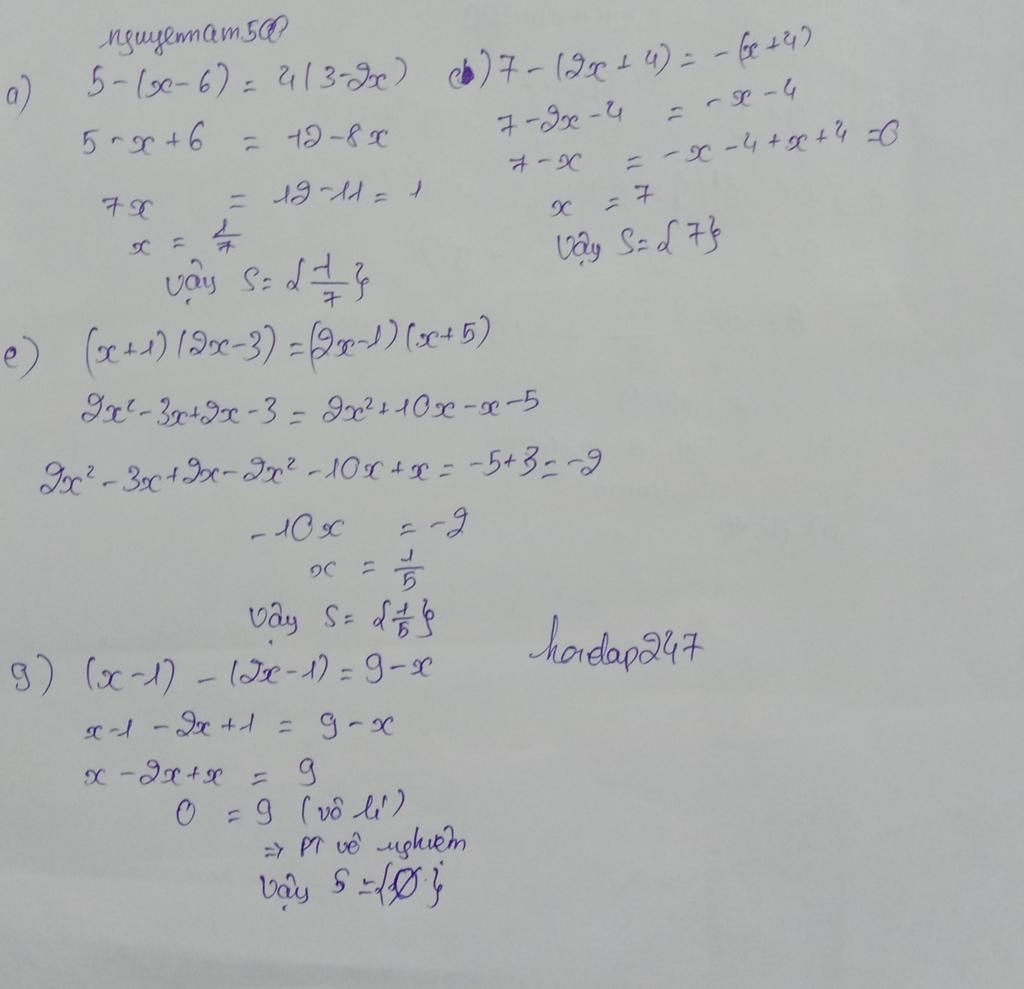 nguyennam500
a) 5-(x-6) = 4(3-2x)
5-x+6 = 12-8x
7x = 12-11 = 1
x = 1/7
Vậy S={1/7}
c) 7-(2x+4) = -(x+4)
7-2x-4 = -x-4
7-x = -x-4+x+4 =0
x = 7
Vậy S={7}
e) (x+1)(2x-3) = (2x-1)(x+5)
2x²-3x+2x-3 = 2x²+10x-x-5
2x²-3x+2x-2x²-10x+x = -5+3=-2
-10x = -2
x = 1/5
Vậy S={1/5}
g) (x-1)-(2x-1) = 9-x
x-1-2x+1 = 9-x
x-2x+x = 9
0 = 9 (vô lí)
=> PT vô nghiệm
Vậy S={∅}
hoidap247